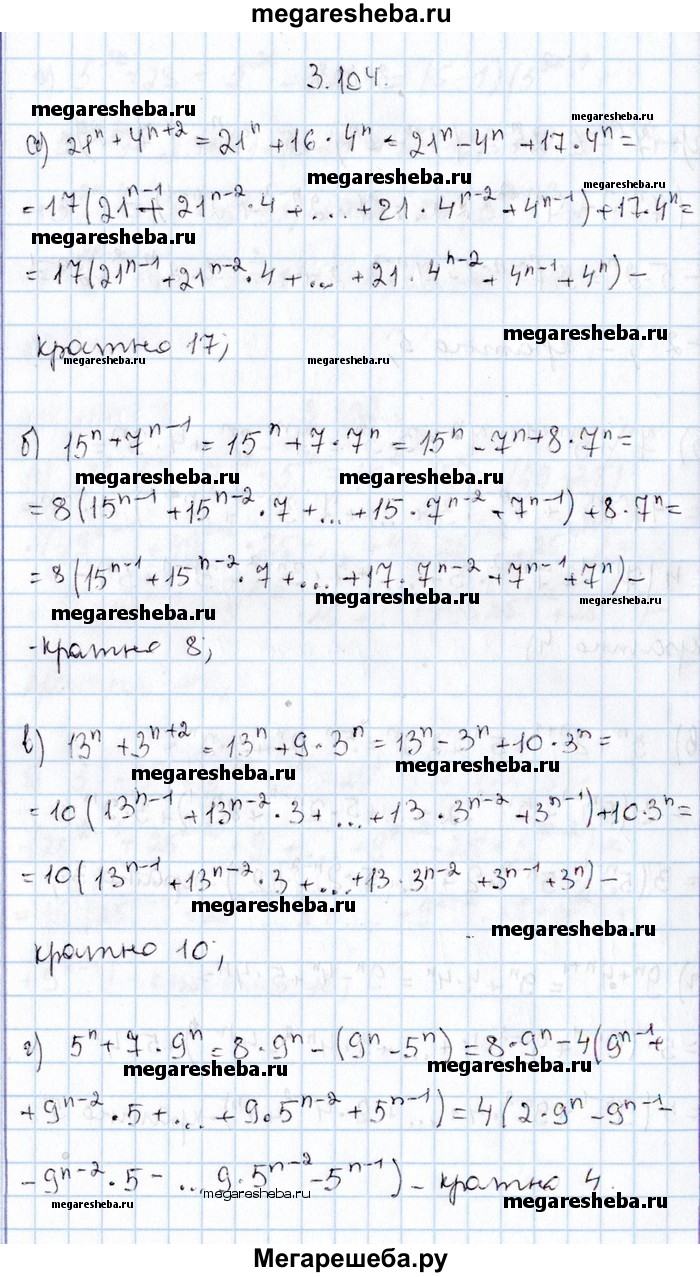 megaresheba.ru
3.104.
megaresheba.ru
megaresheba.ru
а) 21ⁿ + 4ⁿ⁺² = 21ⁿ + 16 · 4ⁿ = 21ⁿ - 4ⁿ + 17 · 4ⁿ =
megaresheba.ru
megaresheba.ru
= 17(21ⁿ⁻¹ + 21ⁿ⁻² · 4 + ... + 21 · 4ⁿ⁻² + 4ⁿ⁻¹) + 17 · 4ⁿ =
megaresheba.ru
= 17(21ⁿ⁻¹ + 21ⁿ⁻² · 4 + ... + 21 · 4ⁿ⁻² + 4ⁿ⁻¹ + 4ⁿ) -
megaresheba.ru
кратно 17;
megaresheba.ru
megaresheba.ru
б) 15ⁿ + 7ⁿ⁻¹ = 15ⁿ + 7 · 7ⁿ = 15ⁿ - 7ⁿ + 8 · 7ⁿ =
megaresheba.ru
megaresheba.ru
= 8(15ⁿ⁻¹ + 15ⁿ⁻² · 7 + ... + 15 · 7ⁿ⁻² + 7ⁿ⁻¹) + 8 · 7ⁿ =
= 8(15ⁿ⁻¹ + 15ⁿ⁻² · 7 + ... + 17 · 7ⁿ⁻² + 7ⁿ⁻¹ + 7ⁿ) -
megaresheba.ru
megaresheba.ru
megaresheba.ru
- кратно 8;
в) 13ⁿ + 3ⁿ⁺² = 13ⁿ + 9 · 3ⁿ = 13ⁿ - 3ⁿ + 10 · 3ⁿ =
megaresheba.ru
megaresheba.ru
= 10(13ⁿ⁻¹ + 13ⁿ⁻² · 3 + ... + 13 · 3ⁿ⁻² + 3ⁿ⁻¹) + 10 · 3ⁿ =
= 10(13ⁿ⁻¹ + 13ⁿ⁻² · 3 + ... + 13 · 3ⁿ⁻² + 3ⁿ⁻¹ + 3ⁿ) -
megaresheba.ru
megaresheba.ru
кратно 10;
г) 5ⁿ + 7 · 9ⁿ = 8 · 9ⁿ - (9ⁿ - 5ⁿ) = 8 · 9ⁿ - 4(9ⁿ⁻¹ +
megaresheba.ru
megaresheba.ru
+ 9ⁿ⁻² · 5 + ... + 9 · 5ⁿ⁻² + 5ⁿ⁻¹) = 4(2 · 9ⁿ - 9ⁿ⁻¹ -
- 9ⁿ⁻² · 5 - ... 9 · 5ⁿ⁻² - 5ⁿ⁻¹) - кратна 4.
megaresheba.ru
megaresheba.ru
megaresheba.ru
Мегарешеба.ру